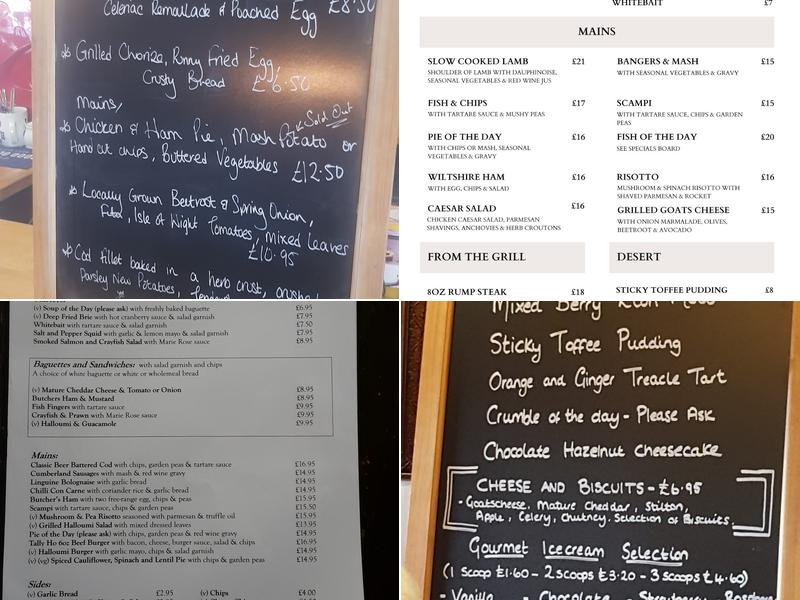 Celeriac Remoulade & Poached Egg £8.50
Grilled Chorizo, Runny Fried Egg,
Crusty Bread £6.50
Mains,
Sold Out
Chicken & Ham Pie, Mash Potato or
Hand cut chips, Buttered Vegetables £12.50
Locally Grown Beetroot & Spring Onion,
Feta, Isle of Wight Tomatoes, Mixed Leaves
£10.95
Cod fillet baked in a herb crust, crushed
Parsley New Potatoes,
WHITEBAIT £7
MAINS
SLOW COOKED LAMB £21
SHOULDER OF LAMB WITH DAUPHINOISE,
SEASONAL VEGETABLES & RED WINE JUS
FISH & CHIPS £17
WITH TARTARE SAUCE & MUSHY PEAS
PIE OF THE DAY £16
WITH CHIPS OR MASH, SEASONAL
VEGETABLES & GRAVY
WILTSHIRE HAM £16
WITH EGG, CHIPS & SALAD
CAESAR SALAD £16
CHICKEN CAESAR SALAD, PARMESAN
SHAVINGS, ANCHOVIES & HERB CROUTONS
BANGERS & MASH £15
WITH SEASONAL VEGETABLES & GRAVY
SCAMPI £15
WITH TARTARE SAUCE, CHIPS & GARDEN
PEAS
FISH OF THE DAY £20
SEE SPECIALS BOARD
RISOTTO £16
MUSHROOM & SPINACH RISOTTO WITH
SHAVED PARMESAN & ROCKET
GRILLED GOATS CHEESE £15
WITH ONION MARMALADE, OLIVES,
BEETROOT & AVOCADO
FROM THE GRILL
8OZ RUMP STEAK £18
DESERT
STICKY TOFFEE PUDDING £8
(v) Soup of the Day (please ask) with freshly baked baguette £6.95
(v) Deep Fried Brie with hot cranberry sauce & salad garnish £7.95
Whitebait with tartare sauce & salad garnish £7.50
Salt and Pepper Squid with garlic & lemon mayo & salad garnish £7.95
Smoked Salmon and Crayfish Salad with Marie Rose sauce £8.95
Baguettes and Sandwiches: with salad garnish and chips
A choice of white baguette or white or wholemeal bread
(v) Mature Cheddar Cheese & Tomato or Onion £8.95
Butchers Ham & Mustard £8.95
Fish Fingers with tartare sauce £9.95
Crayfish & Prawn with Marie Rose sauce £9.95
(v) Halloumi & Guacamole £9.95
Mains:
Classic Beer Battered Cod with chips, garden peas & tartare sauce £16.95
Cumberland Sausages with mash & red wine gravy £14.95
Linguine Bolognaise with garlic bread £14.95
Chilli Con Carne with coriander rice & garlic bread £14.95
Butcher's Ham with two free-range egg, chips & peas £15.95
Scampi with tartare sauce, chips & garden peas £15.50
(v) Mushroom & Pea Risotto seasoned with parmesan & truffle oil £15.95
(v) Grilled Halloumi Salad with mixed dressed leaves £13.95
Pie of the Day (please ask) with chips, garden peas & red wine gravy £14.95
Tally Ho 6oz Beef Burger with bacon, cheese, burger sauce, salad & chips £16.95
(v) Halloumi Burger with garlic mayo, chips & salad garnish £14.95
(v) (vg) Spiced Cauliflower, Spinach and Lentil Pie with chips & garden peas £14.95
Sides:
(v) Garlic Bread £2.95 (v) Chips £4.00
Mixed Berry
Sticky Toffee Pudding
Orange and Ginger Treacle Tart
Crumble of the day - Please Ask
Chocolate Hazelnut Cheesecake
CHEESE AND BISCUITS - £6.95
- Goatscheese, Mature Cheddar, Stilton,
Apple, Celery, Chutney. Selection of Biscuits.
Gourmet Icecream Selection
(1 scoop £1.60 - 2 scoops £3.20 - 3 scoops £4.60)
- Vanilla - Chocolate - Strawberry -